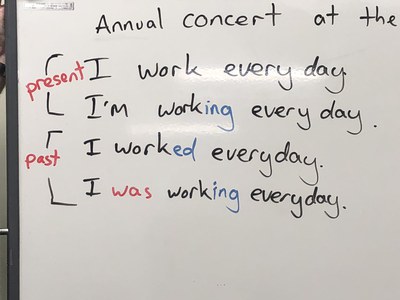 Annual concert at the
present I work every day
I'm working every day.
past I worked everyday.
I was working everyday.